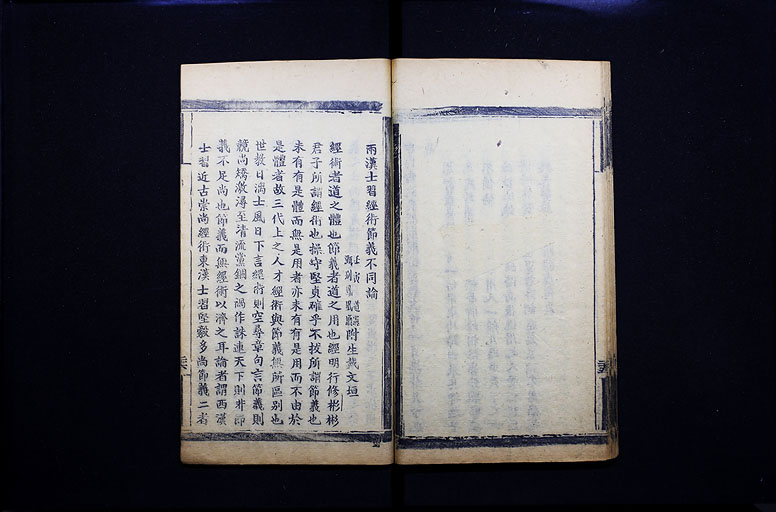 兩漢士習經術節義不同論
附生戴文垣
經術者道之體也節義者道之用也經明行修彬彬
君子所謂經術也操守堅貞確乎不拔所謂節義也
未有有是體而無是用者亦未有有是用而不由於
是體者故三代上之人才經術與節義無所區别也
世教日漓士風日下言經術則空尋章句言節義則
競尚矯激潯至清流黨錮之禍作誅連天下則非節
義不足尚也節義而無經術以濟之耳論者謂西漢
士習近古崇尚經術東漢士習堅敦多尚節義二者